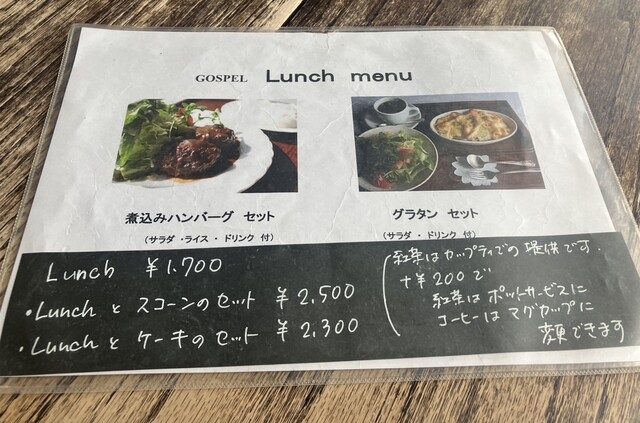 GOSPEL Lunch menu
煮込みハンバーグ セット
(サラダ・ライス・ドリンク 付)
グラタン セット
(サラダ・ドリンク 付)
Lunch ¥1,700
・Lunchと スコーンのセット ¥2,500
・Lunchと ケーキのセット ¥2,300
紅茶はカップティでの提供です.
+¥200で
紅茶はポットサービスに
コーヒーはマグカップに
変更できます